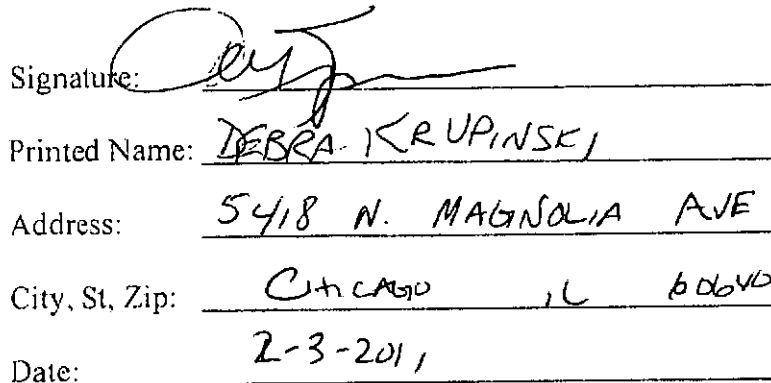 Signature:
Printed Name: DEBRA KRUPINSKI
Address: 5418 N. MAGNOLIA AVE
City, St, Zip: CHICAGO IL 60640
Date: 2-3-2011